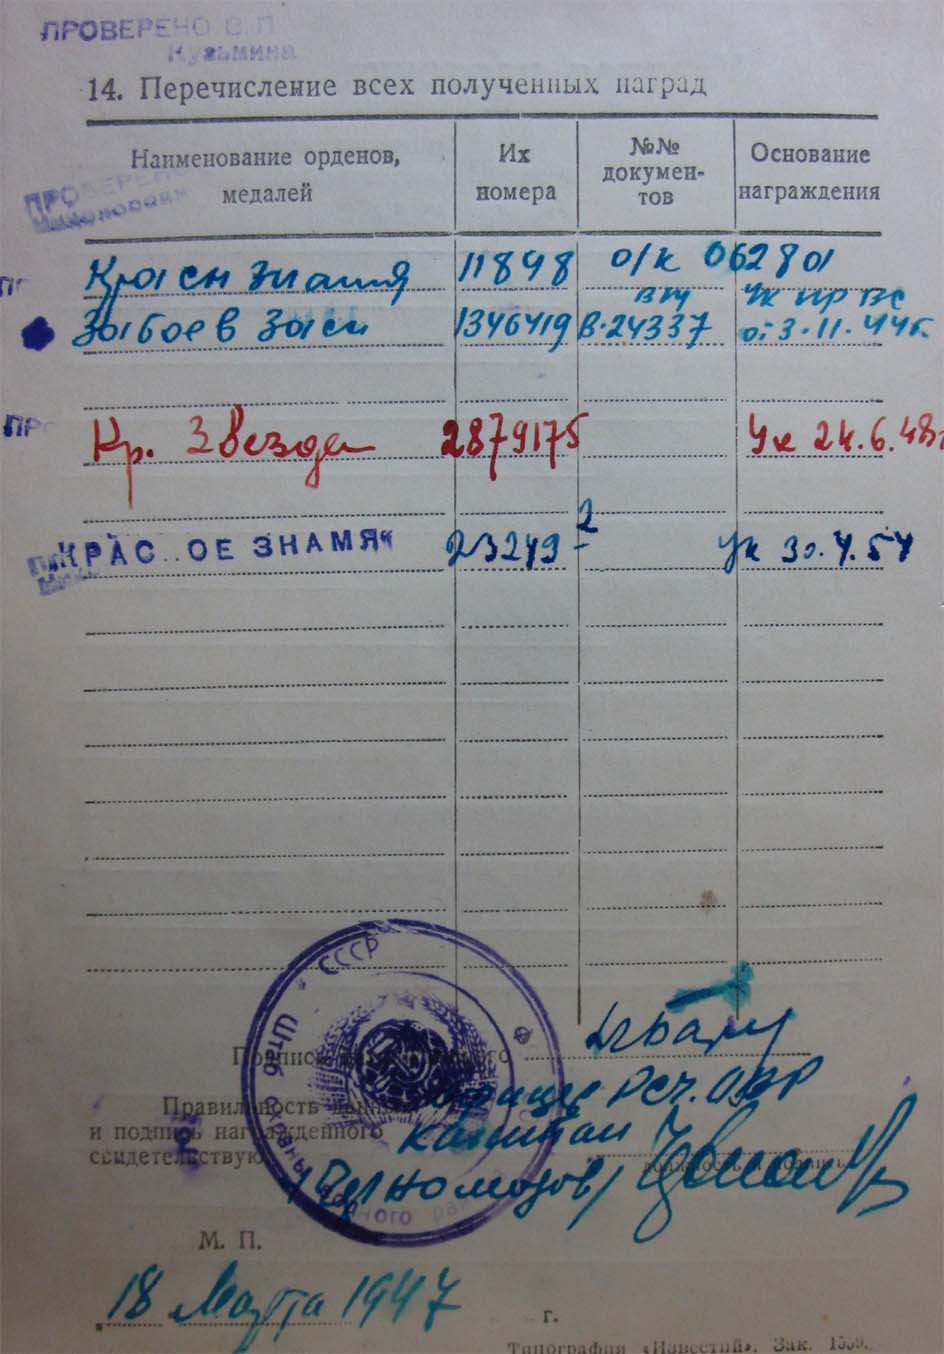 ПРОВЕРЕНО
Кузьмина
14. Перечисление всех полученных наград
Наименование орденов, медалей
Их номера
№№ докумен-тов
Основание награждения
ПРОВЕРЕНО
Красн Знамя 11848 о/к 062801
За боев Засл 1346419 В.24337 Ук пр вс от 3.11.44г.
ПРО
Кр. Звезда 2879175 Ук 24.6.48г
КРАС ОЕ ЗНАМЯ" 23249 - 2 Ук 30.4.54
СССР
Подпись
Правильность данных
и подпись награжденного
свидетельствую
Капитан
/Черномазов/
должность и подпись
М. П.
18 Марта 1947 г.
Типография «Известий». Зак. 1559.